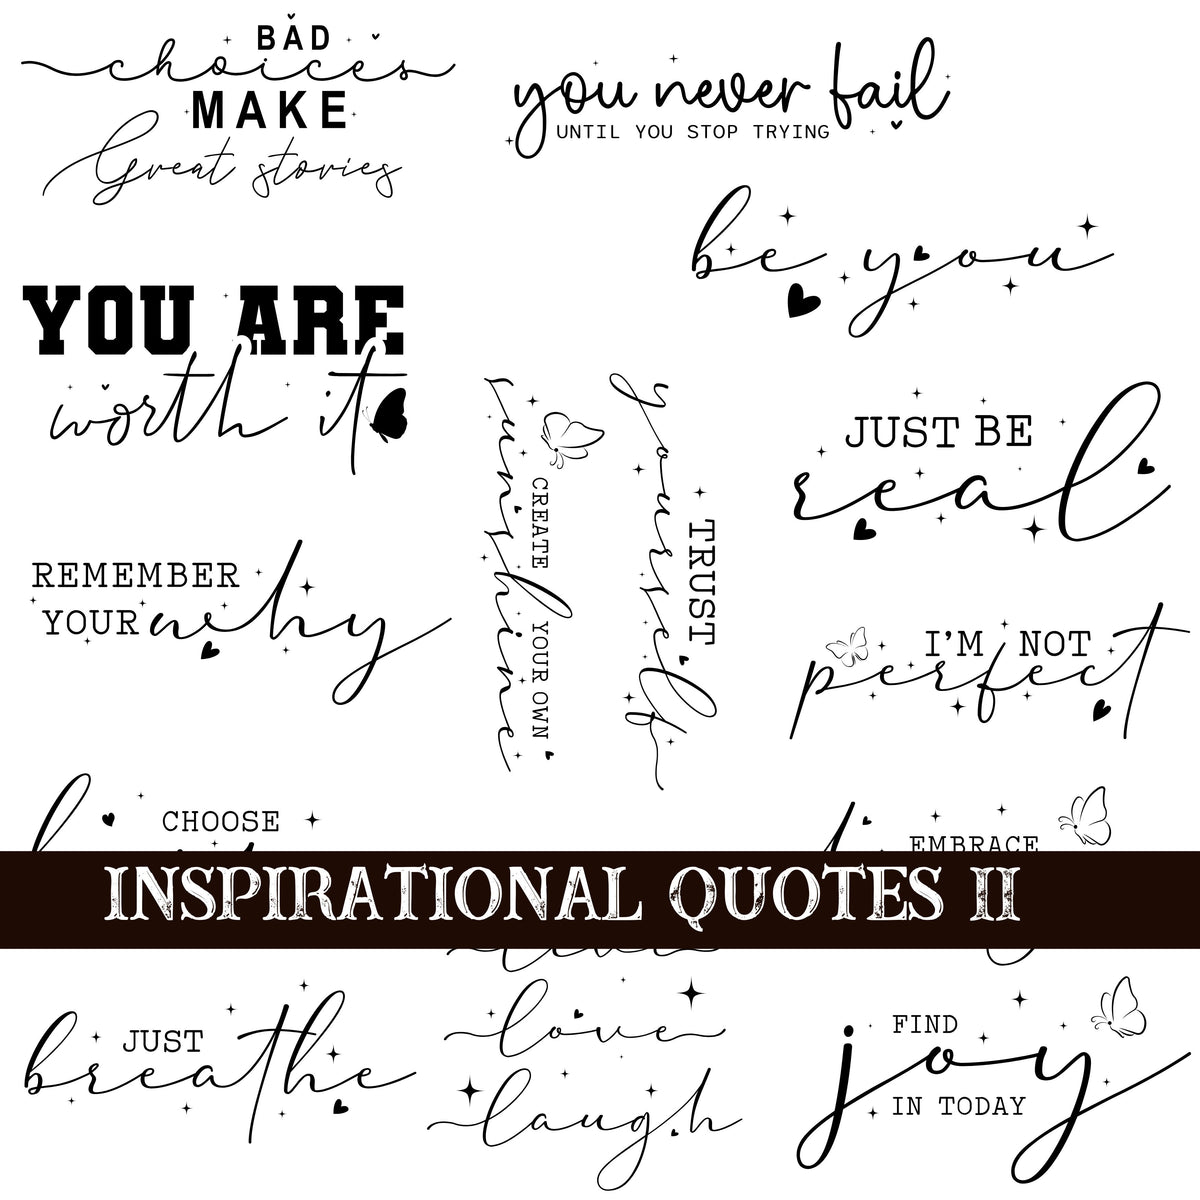 BAD
choices
MAKE
Great stories
you never fail
UNTIL YOU STOP TRYING
be you
YOU ARE
worth it
CREATE YOUR OWN
sunshine
TRUST
yourself
JUST BE
real
REMEMBER
YOUR why
I'M NOT
perfect
CHOOSE
EMBRACE
INSPIRATIONAL QUOTES II
JUST
breathe
love
laugh
FIND
joy
IN TODAY